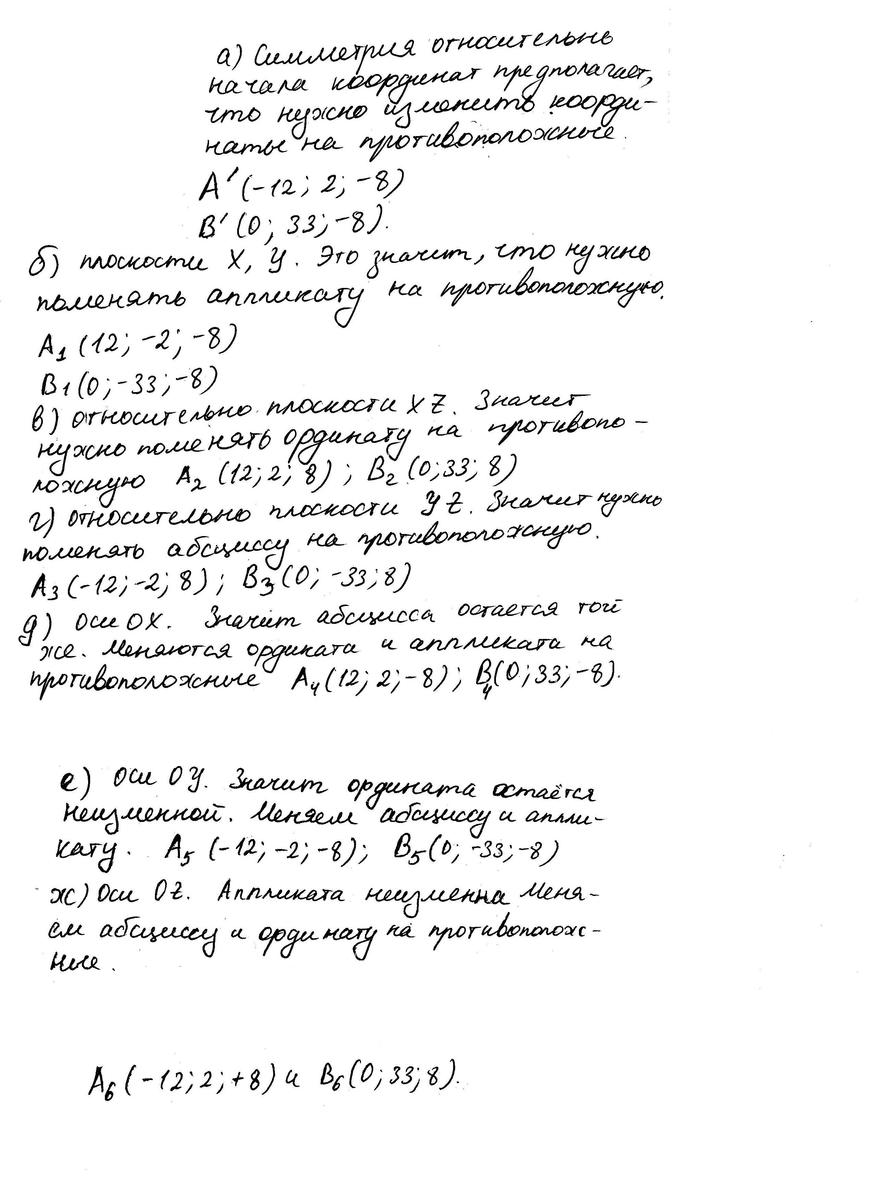 а) Симметрия относительно
начала координат предполагает,
что нужно изменить коорди-
наты на противоположные.
A′(-12; 2; -8)
B′(0; 33; -8).
б) плоскости X, Y. Это значит, что нужно
поменять аппликату на противоположную.
A₁(12; -2; -8)
B₁(0; -33; -8)
в) относительно плоскости XZ. Значит
нужно поменять ординату на противопо-
ложную A₂(12; 2; 8); B₂(0; 33; 8)
г) относительно плоскости YZ. Значит нужно
поменять абсциссу на противоположную.
A₃(-12; -2; 8); B₃(0; -33; 8)
д) оси OX. Значит абсцисса остается той
же. Меняются ордината и аппликата на
противоположные A₄(12; 2; -8); B₄(0; 33; -8).
е) Оси OY. Значит ордината остаётся
неизменной. Меняем абсциссу и аппли-
кату. A₅(-12; -2; -8); B₅(0; -33; -8)
ж) Оси OZ. Аппликата неизменна Меня-
ем абсциссу и ординату на противополож-
ные.
A₆(-12; 2; +8) и B₆(0; 33; 8).